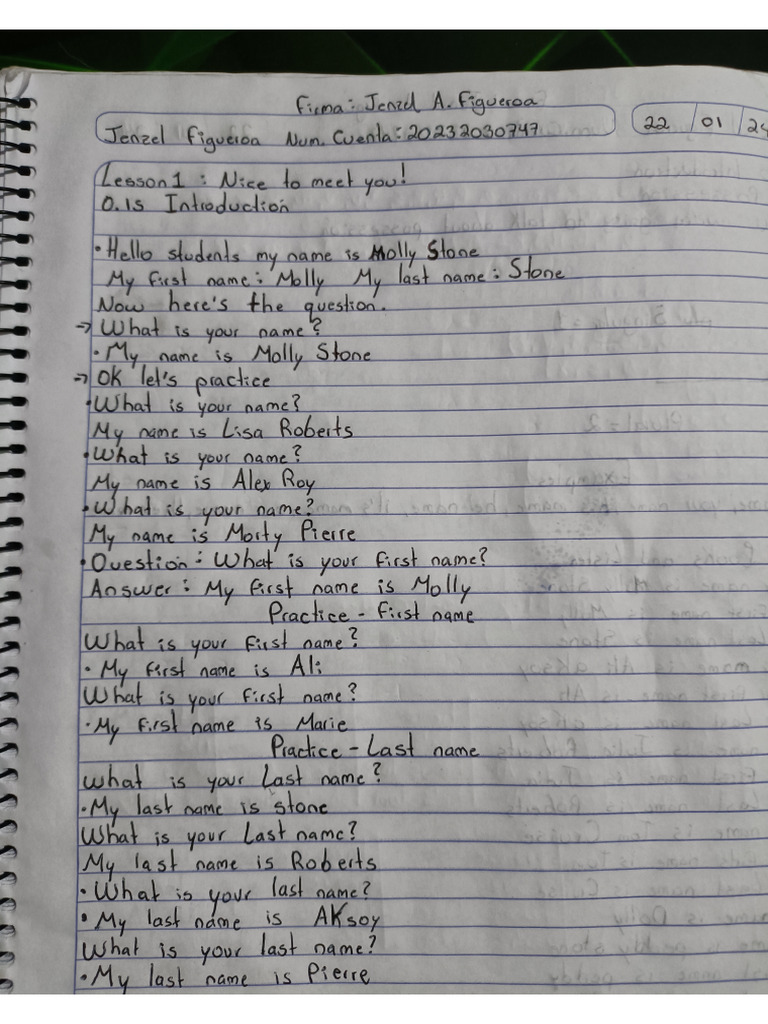 Firma: Jenzel A. Figueroa
Jenzel Figueroa Num. Cuenta: 20232030747 22 01 24
Lesson 1 : Nice to meet you!
0.1s Introduction
• Hello students my name is Molly Stone
My first name: Molly My last name: Stone
Now here's the question.
→ What is your name?
• My name is Molly Stone
→ OK let's practice
• What is your name?
My name is Lisa Roberts
• What is your name?
My name is Alex Roy
• What is your name?
My name is Morty Pierre
• Question: What is your first name?
Answer: My first name is Molly
Practice - First name
What is your first name?
• My first name is Ali
What is your first name?
• My first name is Marie
Practice - Last name
what is your Last name?
• My last name is stone
What is your Last name?
My last name is Roberts
• What is your last name?
• My last name is AKsoy
What is your last name?
• My last name is Pierre